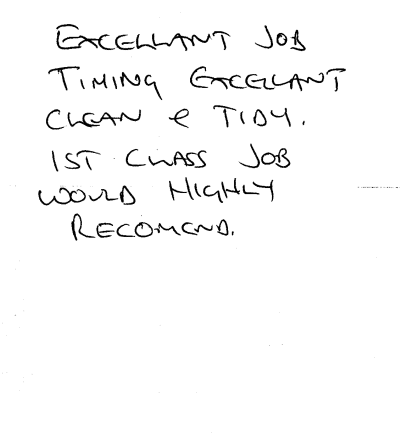 EXCELLANT JOB
TIMING EXCELLANT
CLEAN & TIDY.
1ST CLASS JOB
WOULD HIGHLY
RECOMEND.